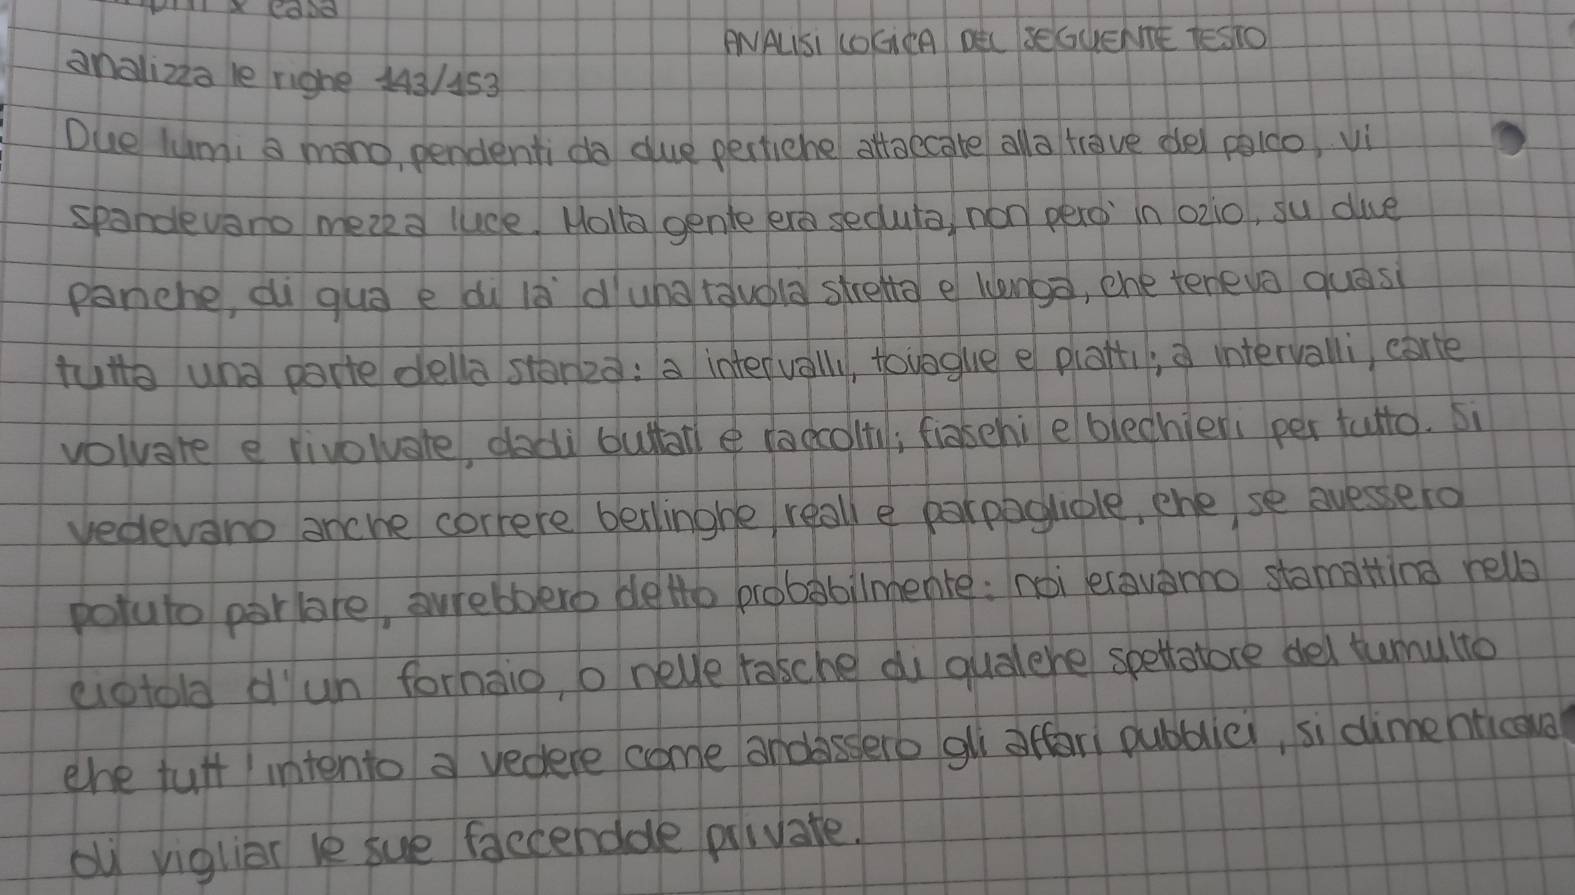 casa
ANALISI LOGICA DEL SEGUENTE TESTO
analizza le righe 143/153
Due lumi a mano, pendenti da due pertiche attaccate alla trave del palco, vi
spandevano mezza luce. Molta gente era seduta, non però in ozio, su due
panche, di qua e di là d'una tavola stretta e lunga, che teneva quasi
tutta una parte della stanza: a intervalli, tovaglie e piatti; a intervalli, carte
volvate e rivolvate, dadi buttati e raccolti; fiaschi e bicchieri per tutto. Si
vedevano anche correre berlinghe, reali e parpagliole, che, se avessero
potuto parlare, avrebbero detto probabilmente: noi eravamo stamattina nella
ciotola d'un fornaio, o nelle tasche di qualche spettatore del tumulto
che tutt'intento a vedere come andassero gli affari pubblici, si dimenticava
di vigliar le sue faccendde private.